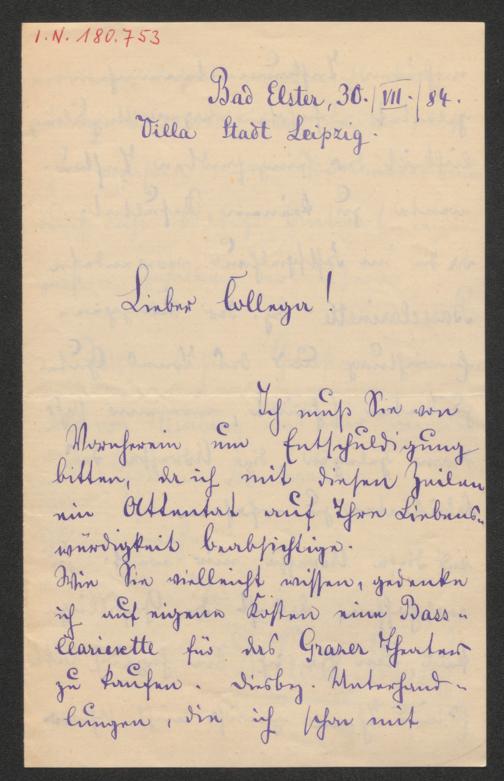 I.N. 180.753
Bad Elster, 30./VII./84.
Villa Stadt Leipzig.
Lieber College!
Ich muß Sie von
Vornherein um Entschuldigung
bitten, da ich mit diesen Zeilen
ein Attentat auf Ihre Liebens-
würdigkeit beabsichtige.
Wie Sie vielleicht wissen, gedenke
ich auf eigene Kosten eine Bass-
Clarinette für das Grazer Theater
zu kaufen. Diesbez. Unterhand-
lungen, die ich schon mit